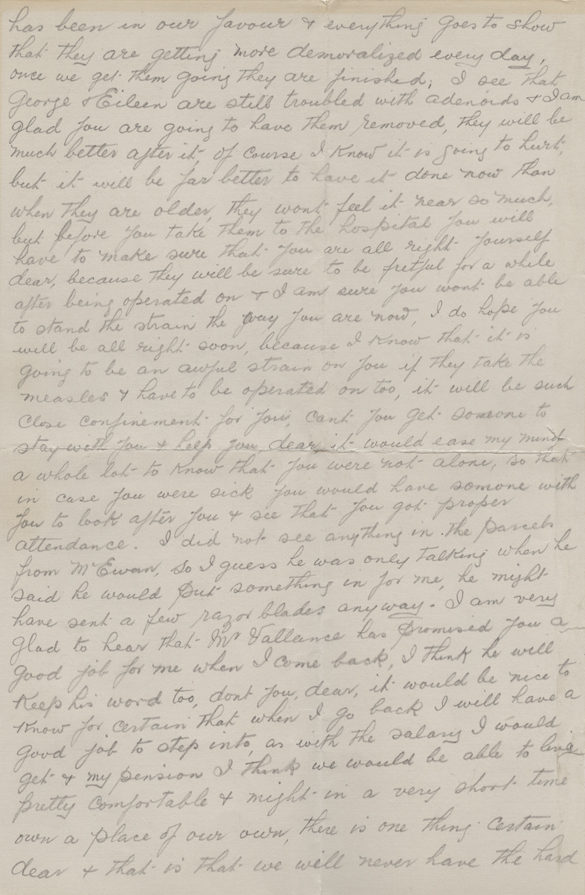 has been in our favour & everything goes to show
that they are getting more demoralized every day,
once we get them going they are finished; I see that
George & Eileen are still troubled with adenoids & I am
glad you are going to have them removed, they will be
much better after it, of course I know it is going to hurt,
but it will be far better to have it done now than
when they are older, they wont feel it near so much,
but before you take them to the hospital you will
have to make sure that you are all right yourself
dear, because they will be sure to be fretful for a while
after being operated on & I am sure you wont be able
to stand the strain the way you are now, I do hope you
will be all right soon, because I know that it is
going to be an awful strain on you if they take the
measles & have to be operated on too, it will be such
close confinement for you, cant you get someone to
stay with you & help you dear, it would ease my mind
a whole lot to know that you were not alone, so that
in case you were sick you would have someone with
you to look after you & see that you got proper
attendance. I did not see anything in the parcels
from McEwan, so I guess he was only talking when he
said he would put something in for me, he might
have sent a few razor blades anyway. I am very
glad to hear that Mr Vallance has promised you a
good job for me when I come back, I think he will
keep his word too, dont you, dear, it would be nice to
know for certain that when I go back I will have a
good job to step into, as with the salary I would
get & my pension I think we would be able to live
pretty comfortable & might in a very short time
own a place of our own, there is one thing certain
dear & that is that we will never have the hard